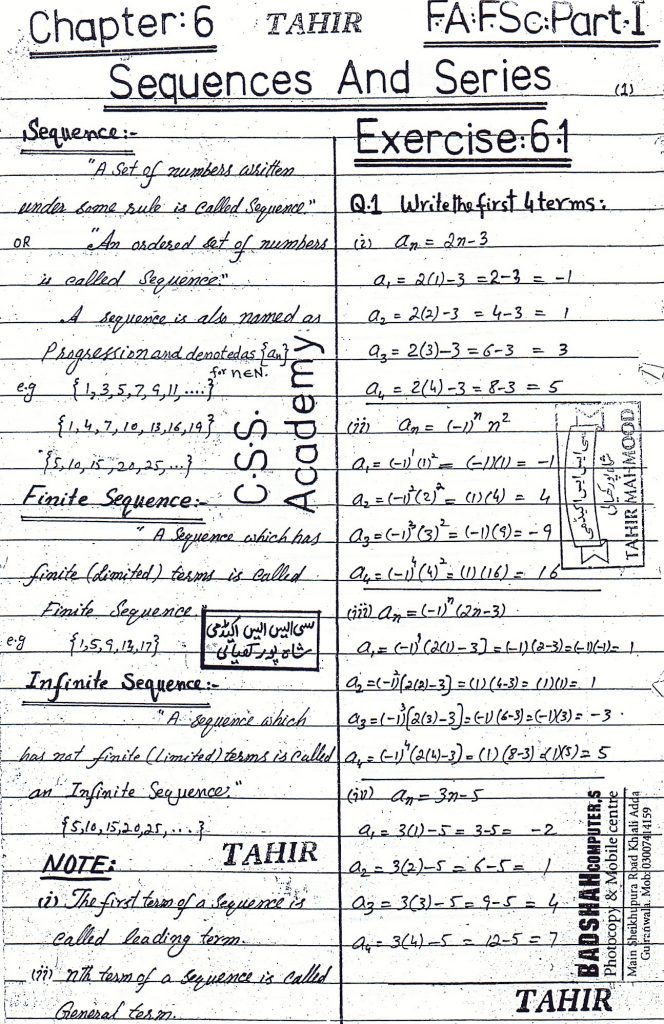 Chapter:6 TAHIR F.A:F.Sc:Part.I
Sequences And Series
(1)
Sequence:-
"A Set of numbers written
under some rule is called Sequence."
OR "An ordered set of numbers
is called Sequence."
A sequence is also named as
Progression and denoted as {aₙ}
for n∈N.
e.g {1,3,5,7,9,11,....}
{1,4,7,10,13,16,19}
{5,10,15,20,25,...}
Finite Sequence:-
"A Sequence which has
finite (Limited) terms is called
Finite Sequence.
e.g {1,5,9,13,17}
Infinite Sequence:-
"A sequence which
has not finite (Limited) terms is called
an Infinite Sequence."
{5,10,15,20,25,....}
NOTE: TAHIR
(i) The first term of a Sequence is
called leading term.
(ii) nth term of a sequence is called
General term.
C.S.S.
Academy
سی ایس ایس اکیڈمی
شاہ پور کھیالی
Exercise:6.1
Q.1 Write the first 4 terms:
(i) aₙ = 2n-3
a₁ = 2(1)-3 = 2-3 = -1
a₂ = 2(2)-3 = 4-3 = 1
a₃ = 2(3)-3 = 6-3 = 3
a₄ = 2(4)-3 = 8-3 = 5
(ii) aₙ = (-1)ⁿ n²
a₁ = (-1)¹(1)² = (-1)(1) = -1
a₂ = (-1)²(2)² = (1)(4) = 4
a₃ = (-1)³(3)² = (-1)(9) = -9
a₄ = (-1)⁴(4)² = (1)(16) = 16
(iii) aₙ = (-1)ⁿ(2n-3)
a₁ = (-1)¹(2(1)-3] = (-1)(2-3) = (-1)(-1) = 1
a₂ = (-1)²[2(2)-3] = (1)(4-3) = (1)(1) = 1
a₃ = (-1)³[2(3)-3] = (-1)(6-3) = (-1)(3) = -3
a₄ = (-1)⁴(2(4)-3) = (1)(8-3) = (1)(5) = 5
(iv) aₙ = 3n-5
a₁ = 3(1)-5 = 3-5 = -2
a₂ = 3(2)-5 = 6-5 = 1
a₃ = 3(3)-5 = 9-5 = 4
a₄ = 3(4)-5 = 12-5 = 7
سی ایس ایس اکیڈمی
شاہ پور کھیالی
TAHIR MAHMOOD
BADSHAH COMPUTER,S
Photocopy & Mobile centre
Main Sheikhupura Road Khiali Adda
Gujranwala. Mob: 03007414159
TAHIR